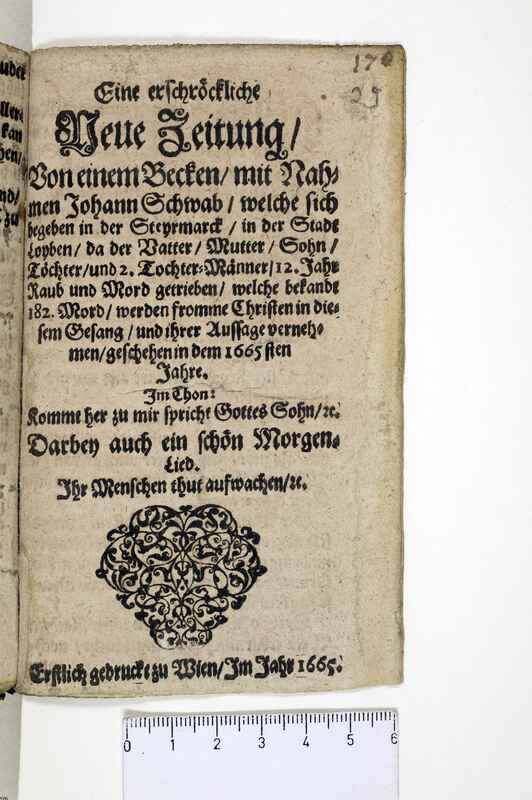 170
29
Eine erschröckliche
Neue Zeitung/
Von einem Becken/ mit Nah-
men Johann Schwab/ welche sich
begeben in der Steyrmarck/ in der Stadt
Loyben/ da der Vatter/ Mutter/ Sohn/
Töchter/und 2. Tochter-Männer/12. Jahr
Raub und Mord getrieben/ welche bekandt
182. Mord/ werden fromme Christen in die-
sem Gesang/ und ihrer Aussage verneh-
men/geschehen in dem 1665sten
Jahre.
Im Thon:
Komme her zu mir spricht Gottes Sohn/ꝛc.
Darbey auch ein schön Morgen-
Lied.
Ihr Menschen thut aufwachen/ꝛc.
Erstlich gedruckt zu Wien/Im Jahr 1665.
0 1 2 3 4 5 6